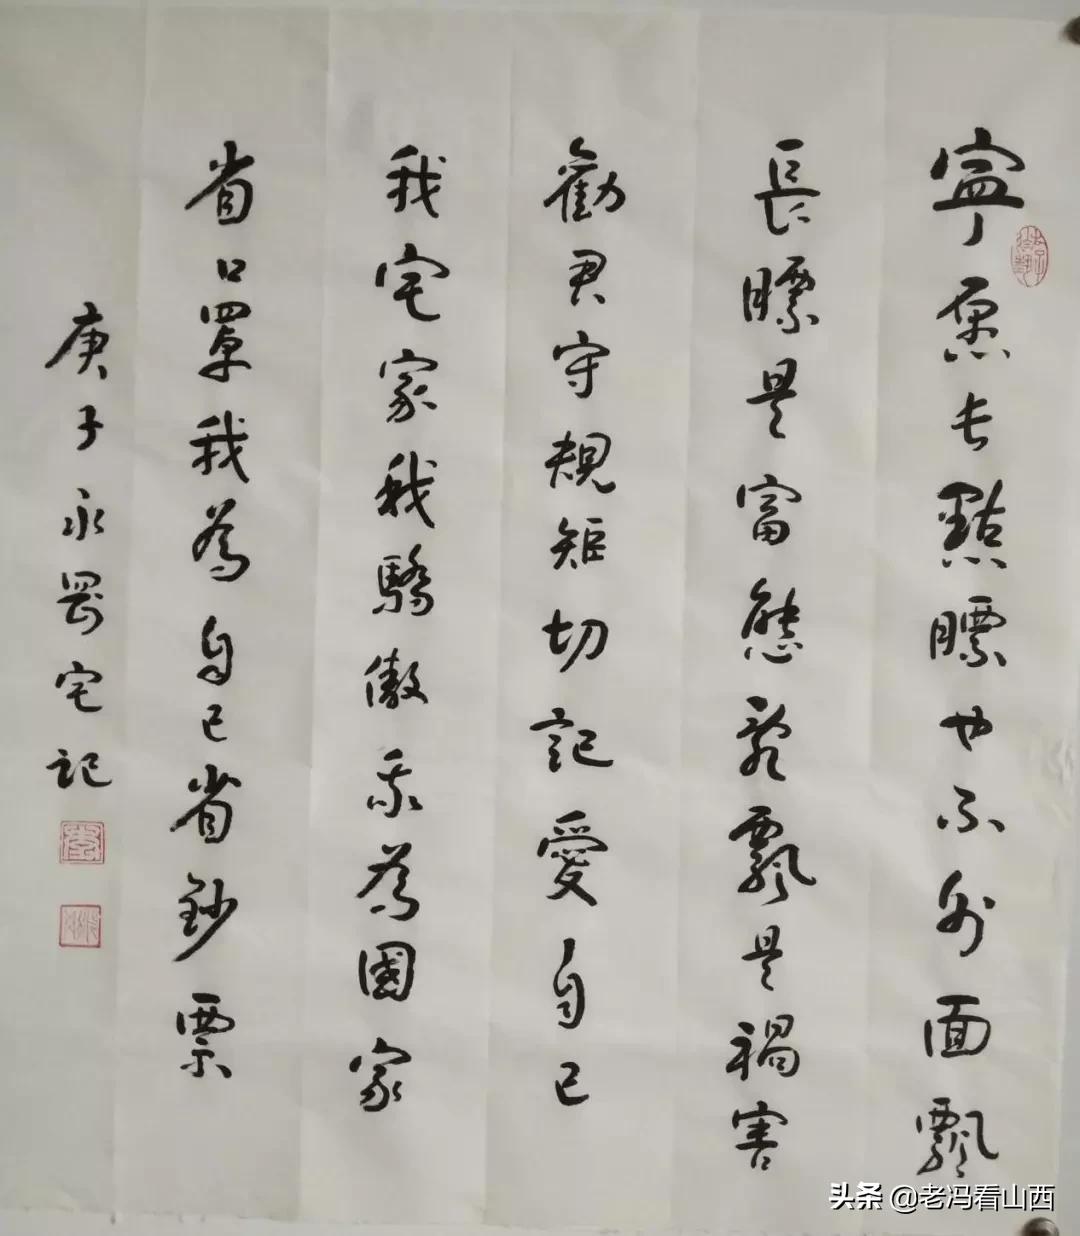 寧愿长點膘也不外面飄
長膘是富態亂飄是禍害
勸君守規矩切記愛自己
我宅家我驕傲我為國家
省口罩我為自己省鈔票
庚子永宅記
头条 @老冯看山西